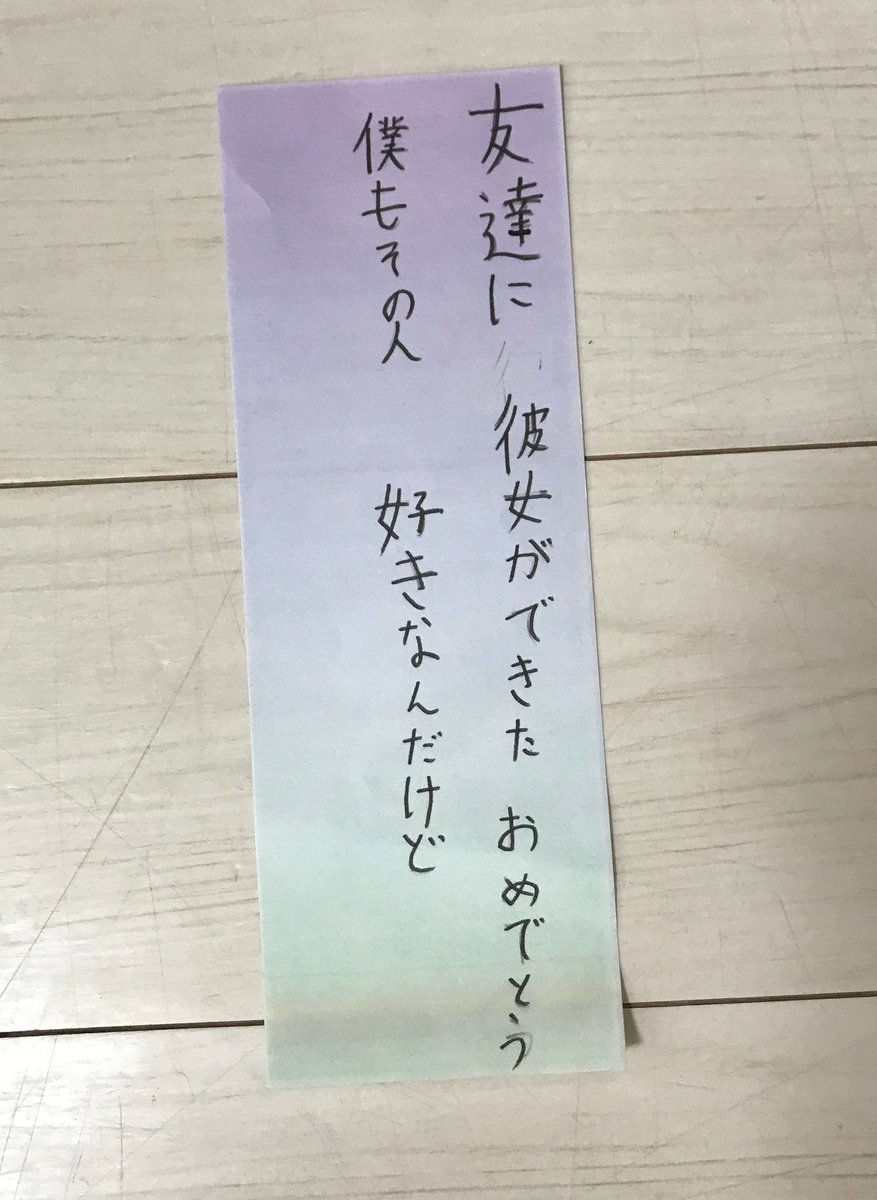 友達に彼女ができた おめでとう
僕もその人 好きなんだけど